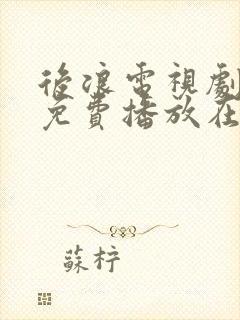 後浪電視劇
免費播放在
蘇柠